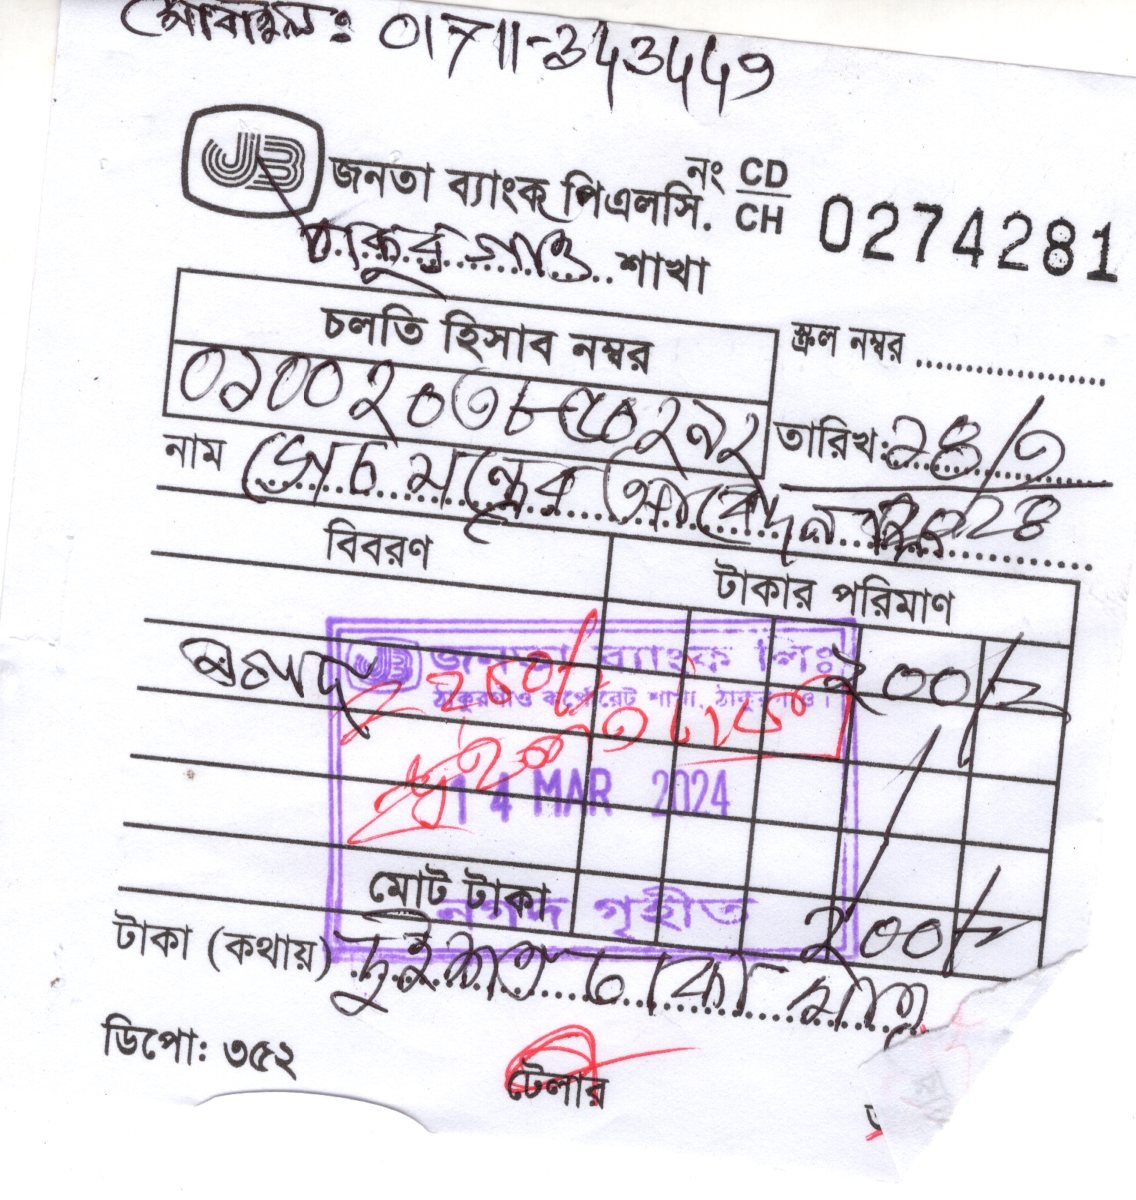 মোবাইল: 01711-343449
JB জনতা ব্যাংক পিএলসি.
নং CD/CH 0274281
ঠাকুরগাঁও শাখা
চলতি হিসাব নম্বর
স্ক্রল নম্বর
০১০০২০৩৮৫০২১২
তারিখ: ১৪/৩
২০২৪
নাম সেচ যন্ত্রের আবেদন
বিবরণ
টাকার পরিমাণ
জনতা ব্যাংক লিঃ
ঠাকুরগাঁও কর্পোরেট শাখা, ঠাকুরগাঁও।
নগদ ২০০/-
14 MAR 2024
মোট টাকা ২০০/-
নগদ গৃহীত
টাকা (কথায়) দুইশত টাকা মাত্র
ডিপো: ৩৫২
টেলার